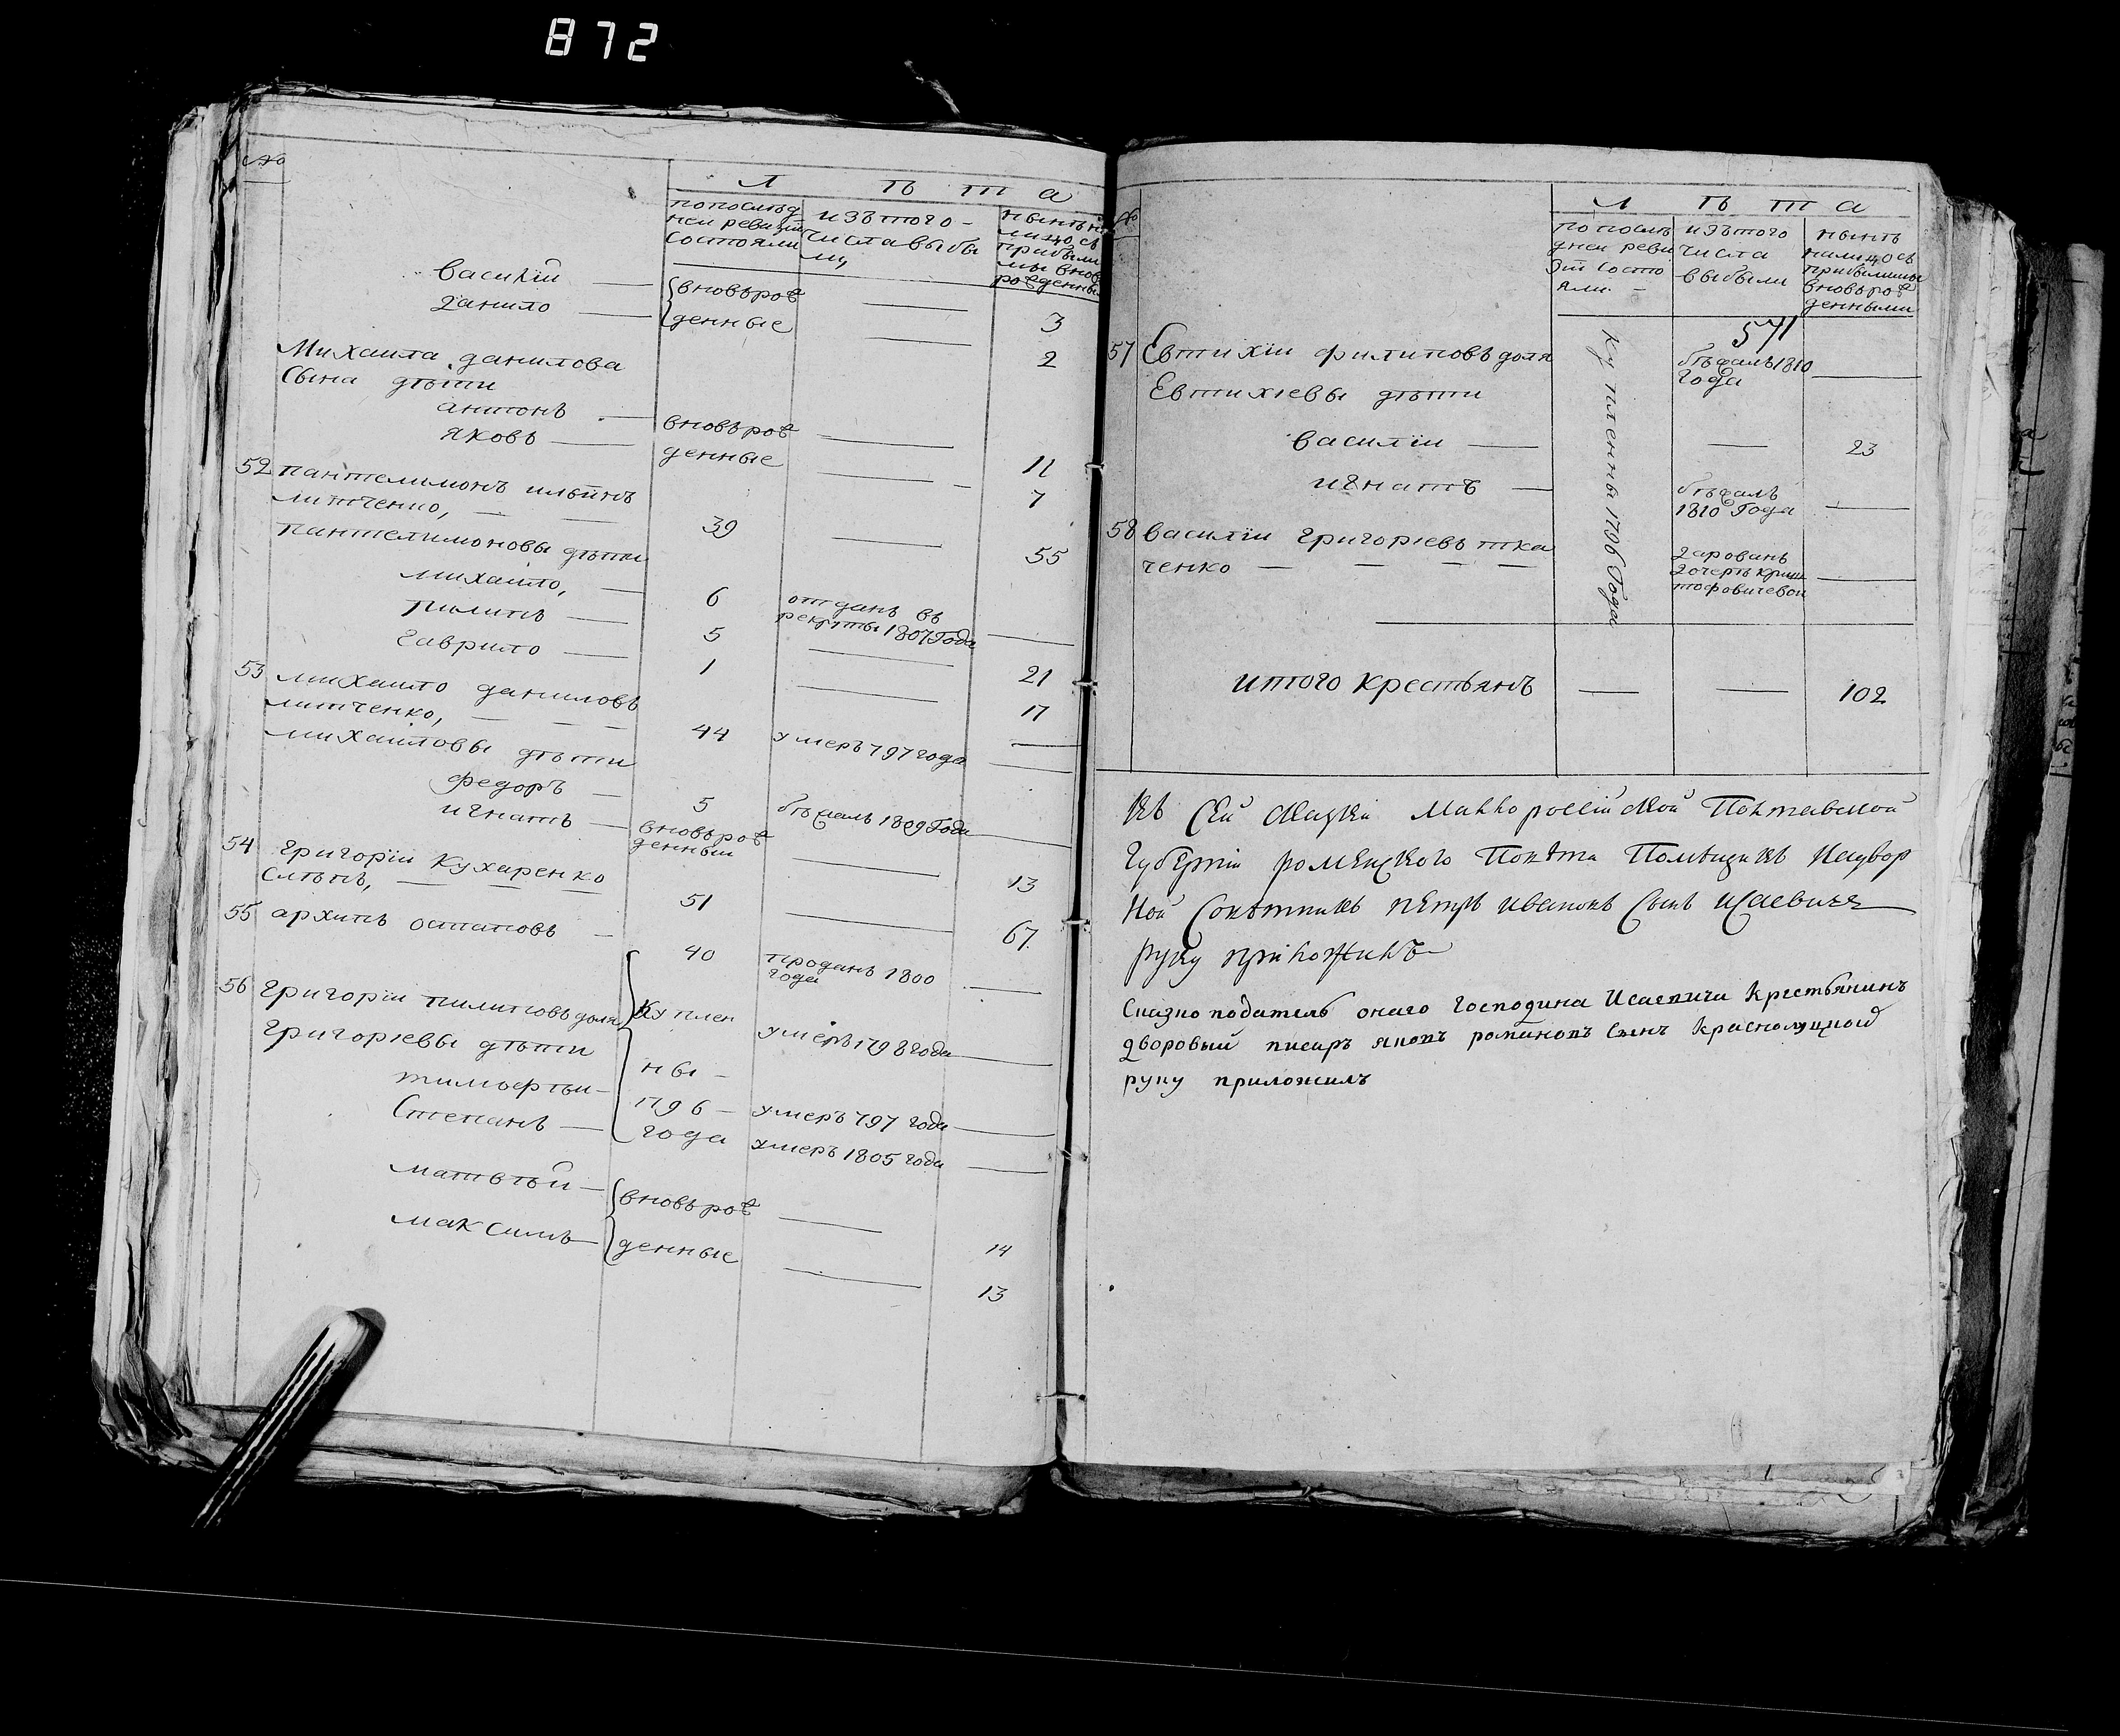 872
№
Л ѣ т а
по послѣд
ней ревизіи
состояли
изъ того
числа выбы
ли
нынѣ на
лицо съ
прибыли
ми вновь
рожденны
Василій — вноврож — 3
данило — денные — 2
Михаила данилова
сына дѣти
антонъ — вноврож — 11
яковъ — денные — 7
52 пантелимонъ ильинъ
литченко, — 39 — 55
пантелимоновы дѣти
михайло, — 6 отданъ въ
рекруты 1807 Года —
пилипъ — 5 — 21
гаврило — 1 — 17
53 михайло даниловъ
литченко, — 44 умеръ 797 года —
михайловы дѣти
федоръ — 5 бѣжалъ 1809 Года —
игнатъ — вноврож
денный — 13
54 григоріи Кухаренко
слѣпъ, — 51 — 67
55 архипъ остаповъ — 40 проданъ 1800
года —
56 григоріи пилиповъ доля Куплен умеръ 1798 года —
григориевы дѣти
тимофѣи — ны — умеръ 797 года —
Степанъ — 1796 — года умеръ 1805 года —
матвѣй — вноврож — 14
максимъ — денные — 13
№
Л ѣ т а
по послѣ
дней реви
зіи состо
яли
изъ того
числа
выбыли
нынѣ
налицо съ
прибылыми
вновьрож
денными
571
57 Евтихіи филиповъ доля бѣжалъ 1810
года —
Евтихиевы дѣти
василіи — 23
игнатъ — бѣжалъ
1810 Года —
Куплены 1796 Года
58 василіи григориевъ тка
ченко — дарованъ
дочерѣ криш
тофовичевой —
итого крестьянъ — — 102
Къ сей сказки Малороссійской Полтавской
Губерніи роменского Повѣта Помѣщикъ Надвор
ной Совѣтникъ петръ ивановъ сынъ исаевичъ
руку приложилъ
Сказкоподатель онаго господина Исаевича крестьянинъ
дворовый писаръ яковъ романовъ сынъ
руку приложилъ